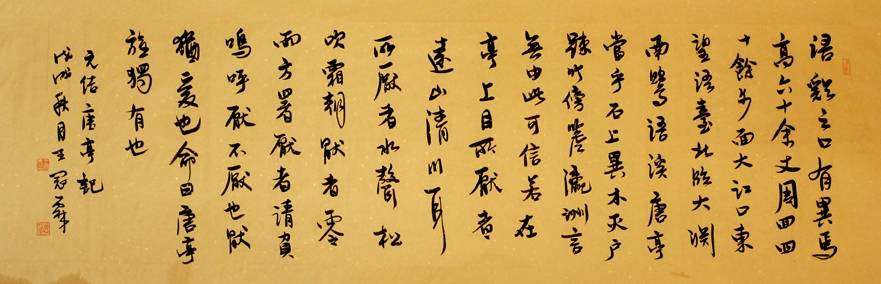 语谿之口有異焉
高六十余丈周回四
十餘步面大江口東
望语臺北临大渊
南语溪唐亭
當乎石上異木灭户
疎竹傍簷瀛洲言
無由此可信若在
亭上目所厭者
遠山清川耳
所厭者水聲松
吹霜朝厭者零
而方署厭者请
嗚呼厭不厭也厭
猶爱也命曰唐亭
旌獨有也
元结唐亭記
秋月王冠